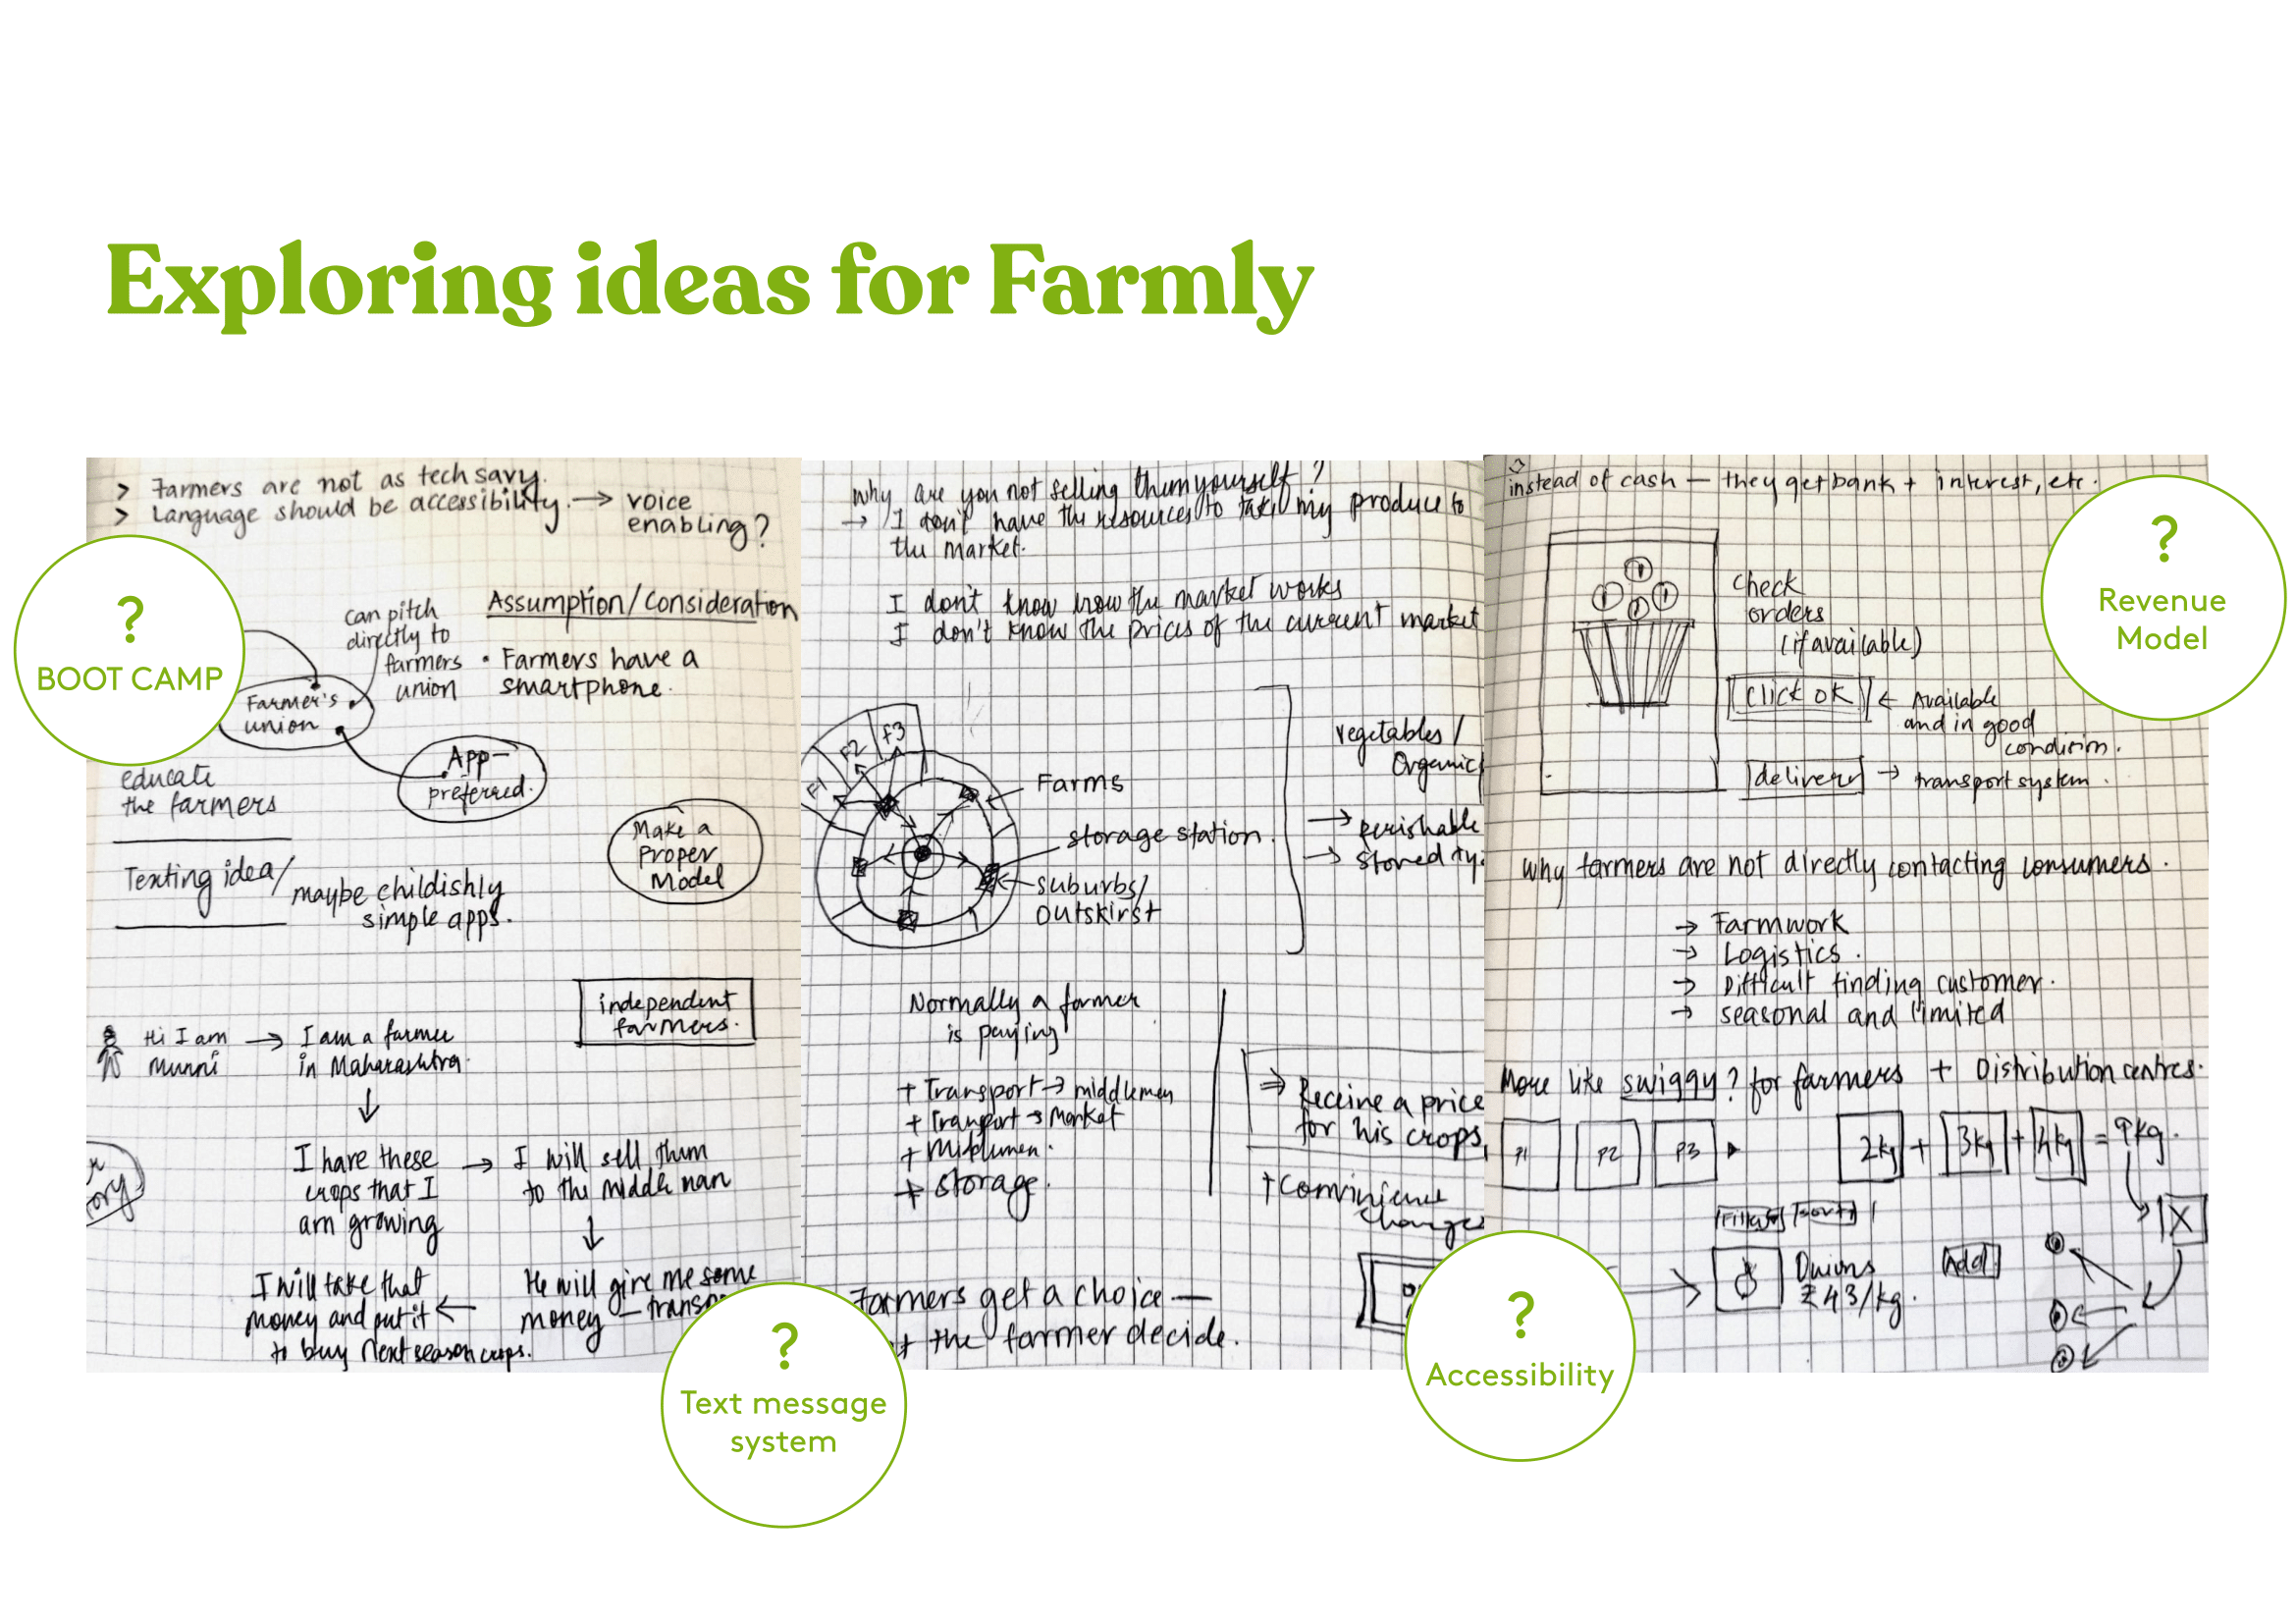 Exploring ideas for Farmly
> Farmers are not as tech savy.
> Language should be accessibility. → voice
enabling?
?
BOOT CAMP
can pitch
directly to
farmers
union
Assumption/Consideration
• Farmers have a
smartphone.
Farmer's
union
App-
preferred.
educate
the farmers
Make a
Proper
Model
Texting idea/
maybe childishly
simple apps.
independent
farmers.
Hi I am
Munni
→ I am a farmer
in Maharashtra.
I have these
crops that I
am growing
→ I will sell them
to the middle man
He will give me some
money — transp
I will take that
money and put it
to buy next season crops.
?
Text message
system
Why are you not selling them yourself?
→ I don't have the resources to take my produce to
the market.
I don't know how the market works
I don't know the prices of the current market
F1
F2
F3
Farms
storage station.
suburbs/
outskirst
vegetables/
Organic
→ perishable
→ stored
Normally a farmer
is paying
+ Transport → middlemen
+ Transport → Market
+ Middlemen.
+ storage.
⇒ Receive a price
for his crops,
+ Convinience
Farmers get a choice —
the farmer decide.
?
Accessibility
instead of cash — they get bank + interest, etc.
?
Revenue
Model
check
orders
(if available)
click ok ← Available
and in good
condition.
delivery → transport system.
Why farmers are not directly contacting consumers.
→ Farmwork
→ Logistics.
→ Difficult finding customer.
→ seasonal and limited
More like swiggy? for farmers + Distribution centres.
P1 P2 P3
2kg + 3kg + 4kg = 9kg.
X
Onions
₹43/kg.
Add